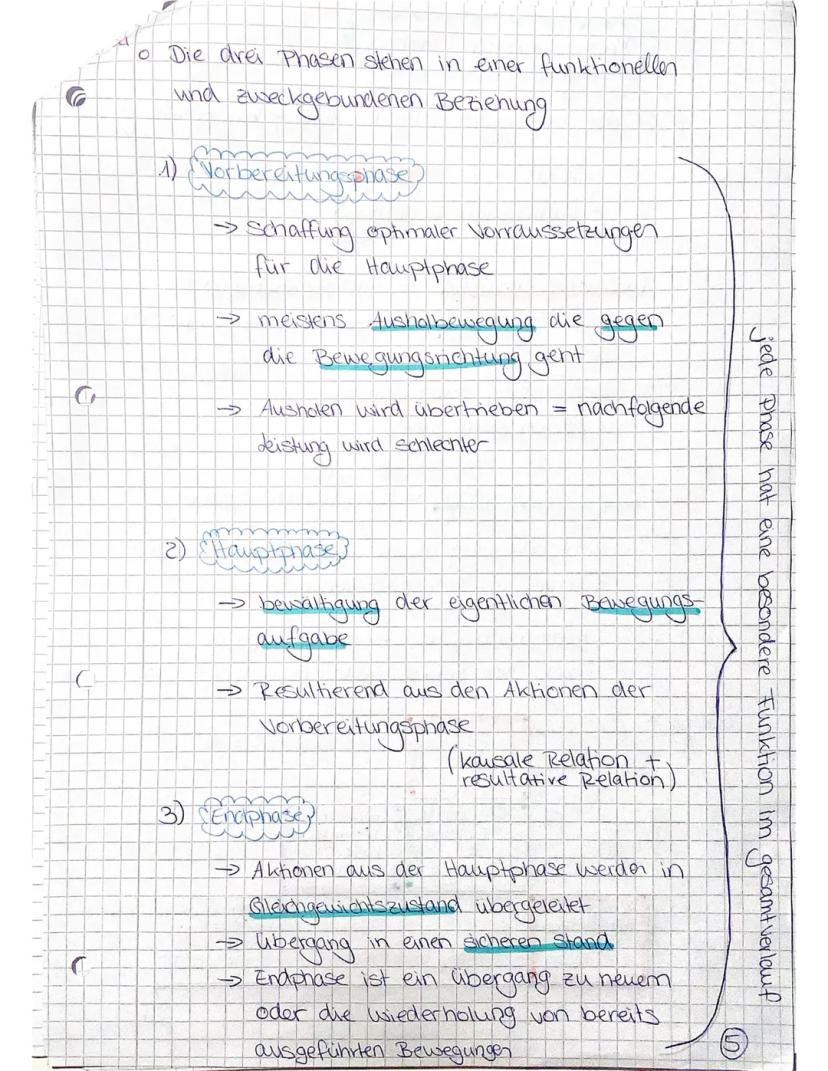 o Die drei Phasen stehen in einer funktionellen
und zweckgebundenen Beziehung
1) Vorbereitungsphase
→ Schaffung optimaler Vorraussetzungen
für die Hauptphase
→ meistens Ausholbewegung die gegen
die Bewegungsrichtung geht
→ Ausholen wird übertrieben = nachfolgende
Leistung wird schlechter
2) Hauptphase
→ bewältigung der eigentlichen Bewegungs-
aufgabe
→ Resultierend aus den Aktionen der
Vorbereitungsphase
(kausale Relation +
resultative Relation)
3) Endphase
→ Aktionen aus der Hauptphase werden in
Gleichgewichtszustand übergeleitet
→ Übergang in einen sicheren Stand
→ Endphase ist ein Übergang zu neuem
oder die Wiederholung von bereits
ausgeführten Bewegungen
jede Phase hat eine besondere Funktion im gesamtverlauf
5